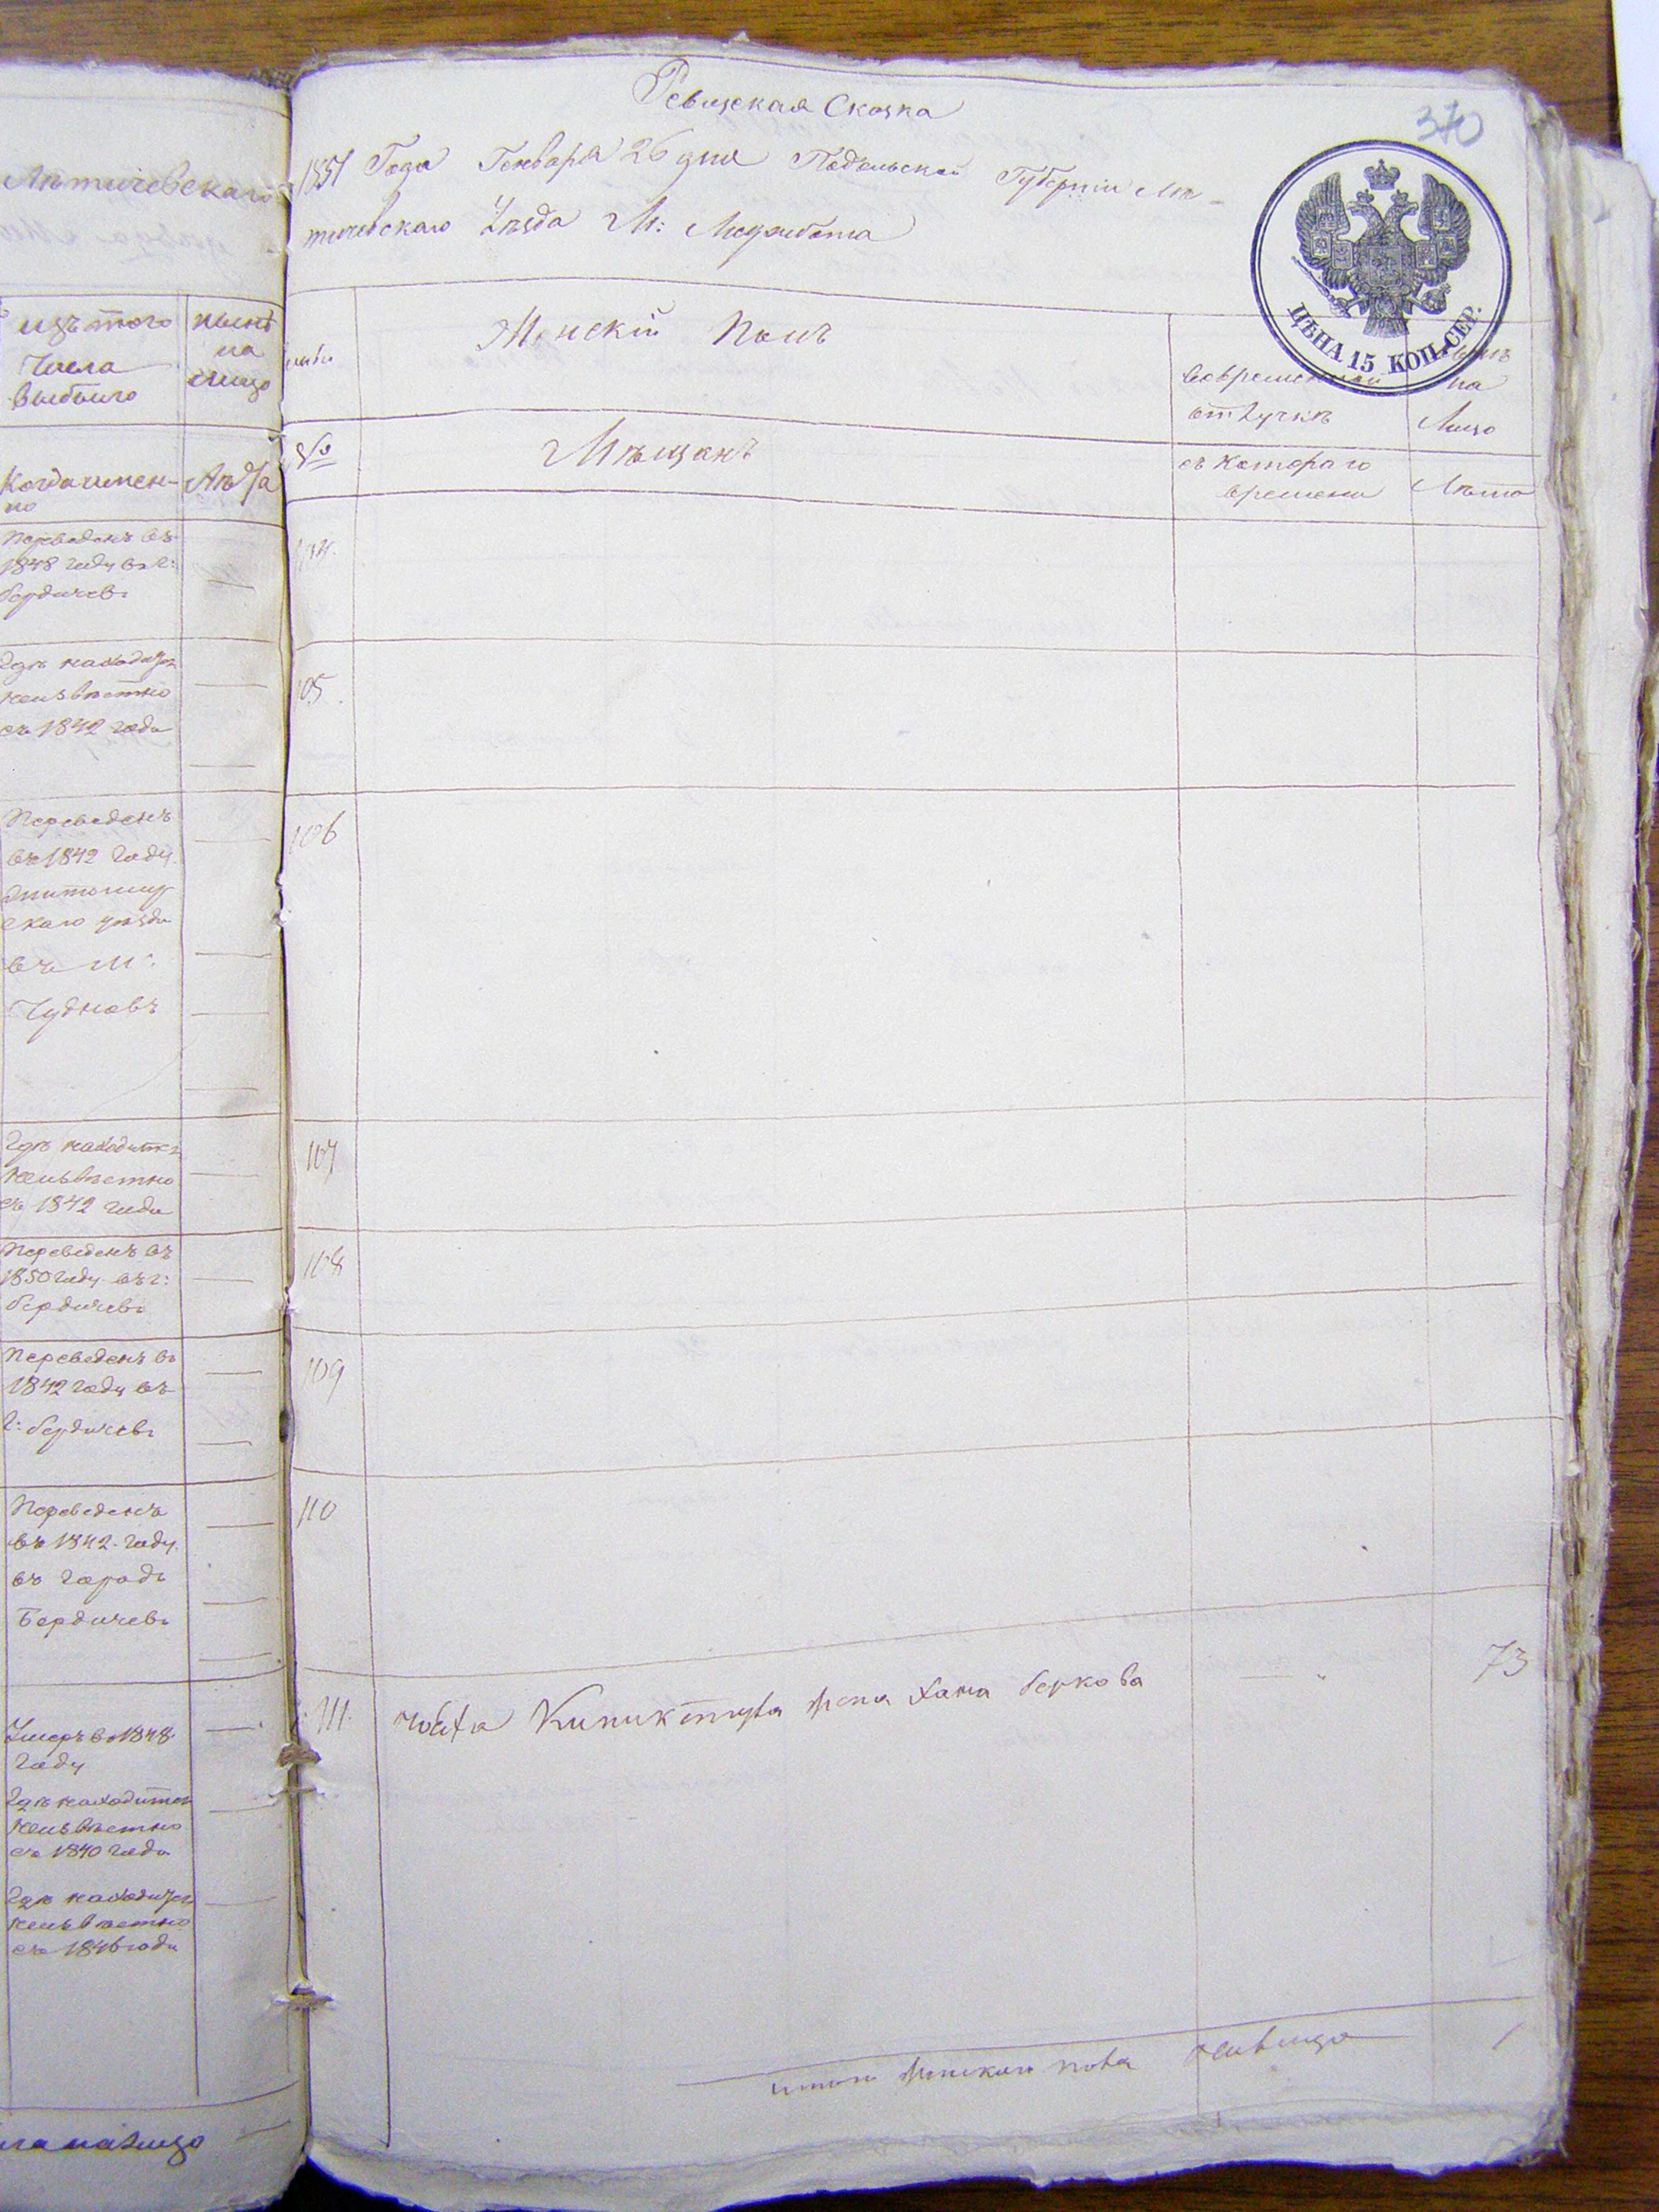 Лѣтичевскаго
изъ того
числа
выбыло
нынѣ
на
лицо
Когда имен-
но
Лѣта
Переведенъ въ
1848 году въ г:
Бердичевъ
Гдѣ находится
неизвѣстно
съ 1842 года
Переведенъ
въ 1842 году
Житомир
скаго уѣзда
въ м:
Чудновъ
Гдѣ находится
неизвѣстно
съ 1842 года
Переведенъ въ
1850 году въ г:
Бердичевъ
Переведенъ въ
1842 году въ
г: Бердичевъ
Переведенъ
въ 1842 году
въ городъ
Бердичевъ
Умеръ въ 1848
году
Гдѣ находится
неизвѣстно
съ 1840 года
Гдѣ находится
неизвѣстно
съ 1846 года
на лицо
Ревизская Сказка
370
1851 Года Генваря 26 дня Подольской Губерніи Лѣ-
тичевскаго Уѣзда М: Меджибожа
ЦѢНА 15 КОП. СЕР.
Женскій Полъ
во временной
отлучкѣ
на
Лицо
№
Мѣщанъ
съ котораго
времени
Лѣта
104.
105.
106
107
108
109
110
111. Кипиктура жена Хана Беркова — " 73
итого женскаго пола налицо 1